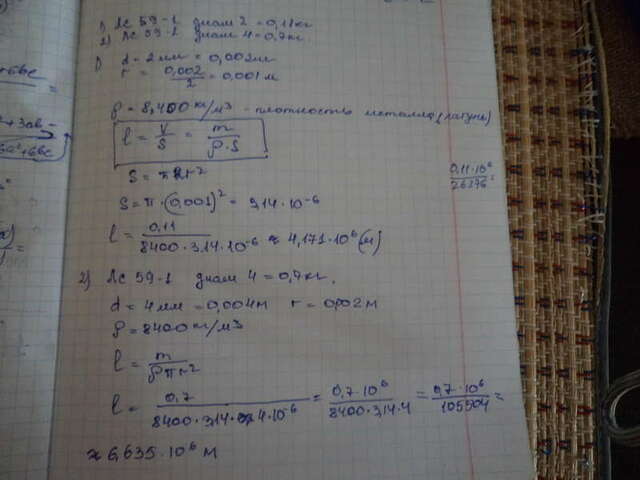 1) ЛС 59-1 диам 2 = 0,11 кг
2) ЛС 59-1 диам 4 = 0,7 кг.
1) d = 2 мм = 0,002 м
r = 0,002/2 = 0,001 м
ρ = 8,400 кг/м3 - плотность металла (латуни)
l = V/S = m/ρ·S
S = πr²
S = π·(0,001)² = 3,14·10⁻⁶
0,11·10⁶/26376 =
l = 0,11/8400·3,14·10⁻⁶ ≈ 4,171·10⁶ (м)
2) ЛС 59-1 диам 4 = 0,7 кг.
d = 4 мм = 0,004 м r = 0,002 м
ρ = 8400 кг/м3
l = m/ρπr²
l = 0,7/8400·3,14·4·10⁻⁶ = 0,7·10⁶/8400·3,14·4 = 0,7·10⁶/105504 =
≈ 6,635·10⁶ м